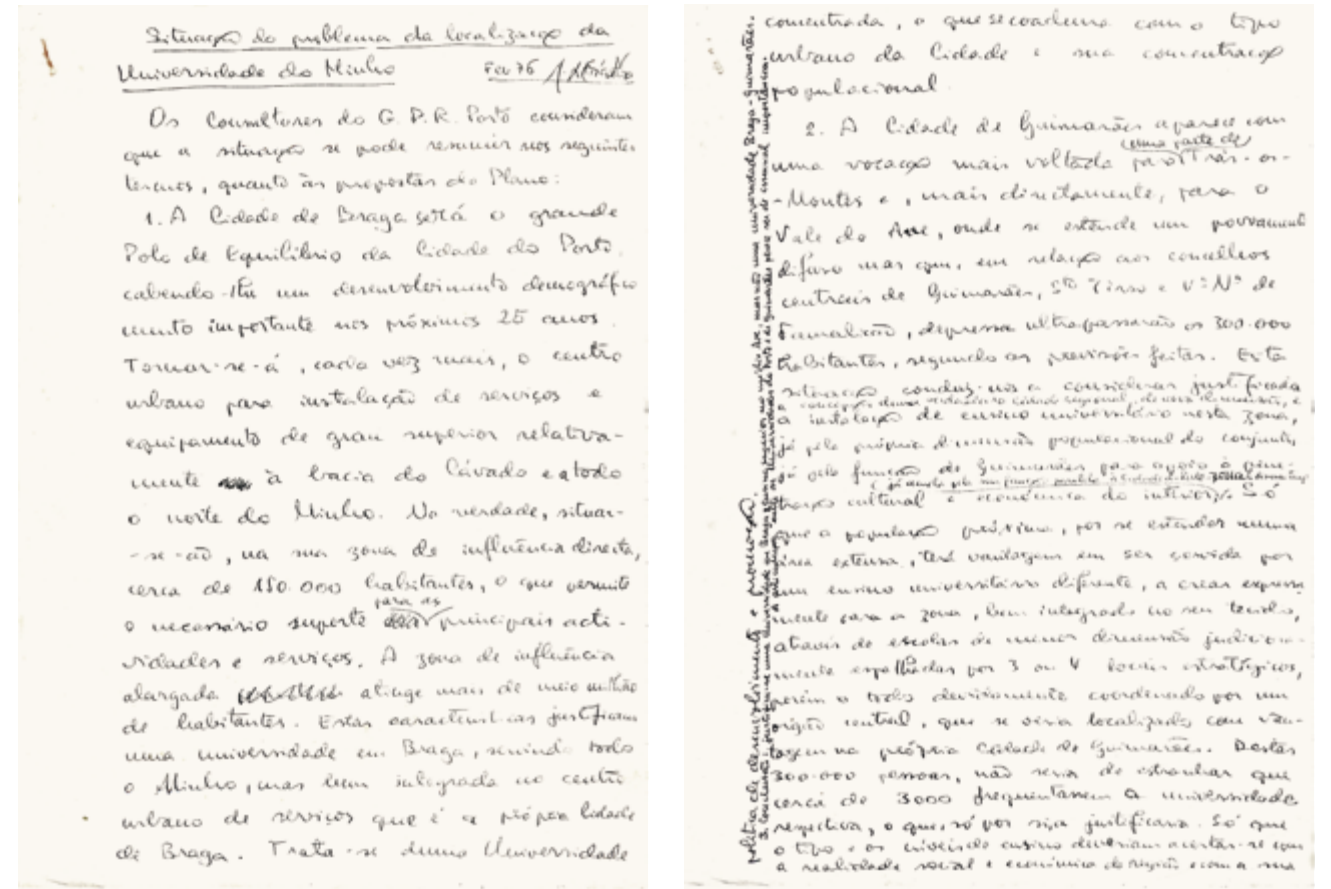 Situação do problema da localização da
Universidade do Minho Fev 76
Os Consultores do G.P.R. Porto consideram
que a situação se pode resumir nos seguintes
termos, quanto às propostas do Plano:
1. A Cidade de Braga será o grande
Polo de Equilíbrio da Cidade do Porto,
cabendo-lhe um desenvolvimento demográfico
muito importante nos próximos 25 anos.
Tornar-se-á, cada vez mais, o centro
urbano para instalação de serviços e
equipamento de grau superior relativa-
mente à bacia do Cávado e a todo
o norte do Minho. Na verdade, situar-
-se-ão, na sua zona de influência directa,
cerca de 150.000 habitantes, o que permite
para as
o necessário suporte principais acti-
vidades e serviços. A zona de influência
alargada atinge mais de meio milhão
de habitantes. Estas características justificam
uma universidade em Braga, servindo todo
o Minho, mas bem integrada no centro
urbano de serviços que é a própria Cidade
de Braga. Trata-se duma Universidade
concentrada, o que se coaduna com o tipo
urbano da Cidade e sua concentração
populacional
2. A Cidade de Guimarães aparece com
uma parte de
uma vocação mais voltada para Trás-os-
-Montes e, mais directamente, para o
Vale do Ave, onde se estende um povoamento
difuso mas que, em relação aos concelhos
centrais de Guimarães, Sto Tirso e Vª Nª de
Famalicão, depressa ultrapassarão os 300.000
habitantes, segundo as previsões feitas. Esta
situação conduz-nos a considerar justificada
a instalação de ensino universitário nesta zona,
já pela própria dimensão populacional do conjunto,
já pela função de Guimarães para apoio à pene-
tração cultural e económica do interior. Só
que a população próxima, por se estender numa
área extensa, terá vantagem em ser servida por
um ensino universitário diferente, a crear expressa-
mente para a zona, bem integrado no seu tecido,
através de escolas de menor dimensão judiciosa-
mente espalhadas por 3 ou 4 locais estratégicos,
porém o todo devidamente coordenado por um
órgão central, que se veria localizado com van-
tagem na própria Cidade de Guimarães. Destas
300.000 pessoas, não seria de estranhar que
cerca de 3000 frequentassem a universidade
respectiva, o que, só por si, a justificaria. Só que
o tipo e os níveis do ensino deveriam acertar-se com
a realidade social e económica da região e com a sua
política de desenvolvimento e promoção.
3. Conclusão: